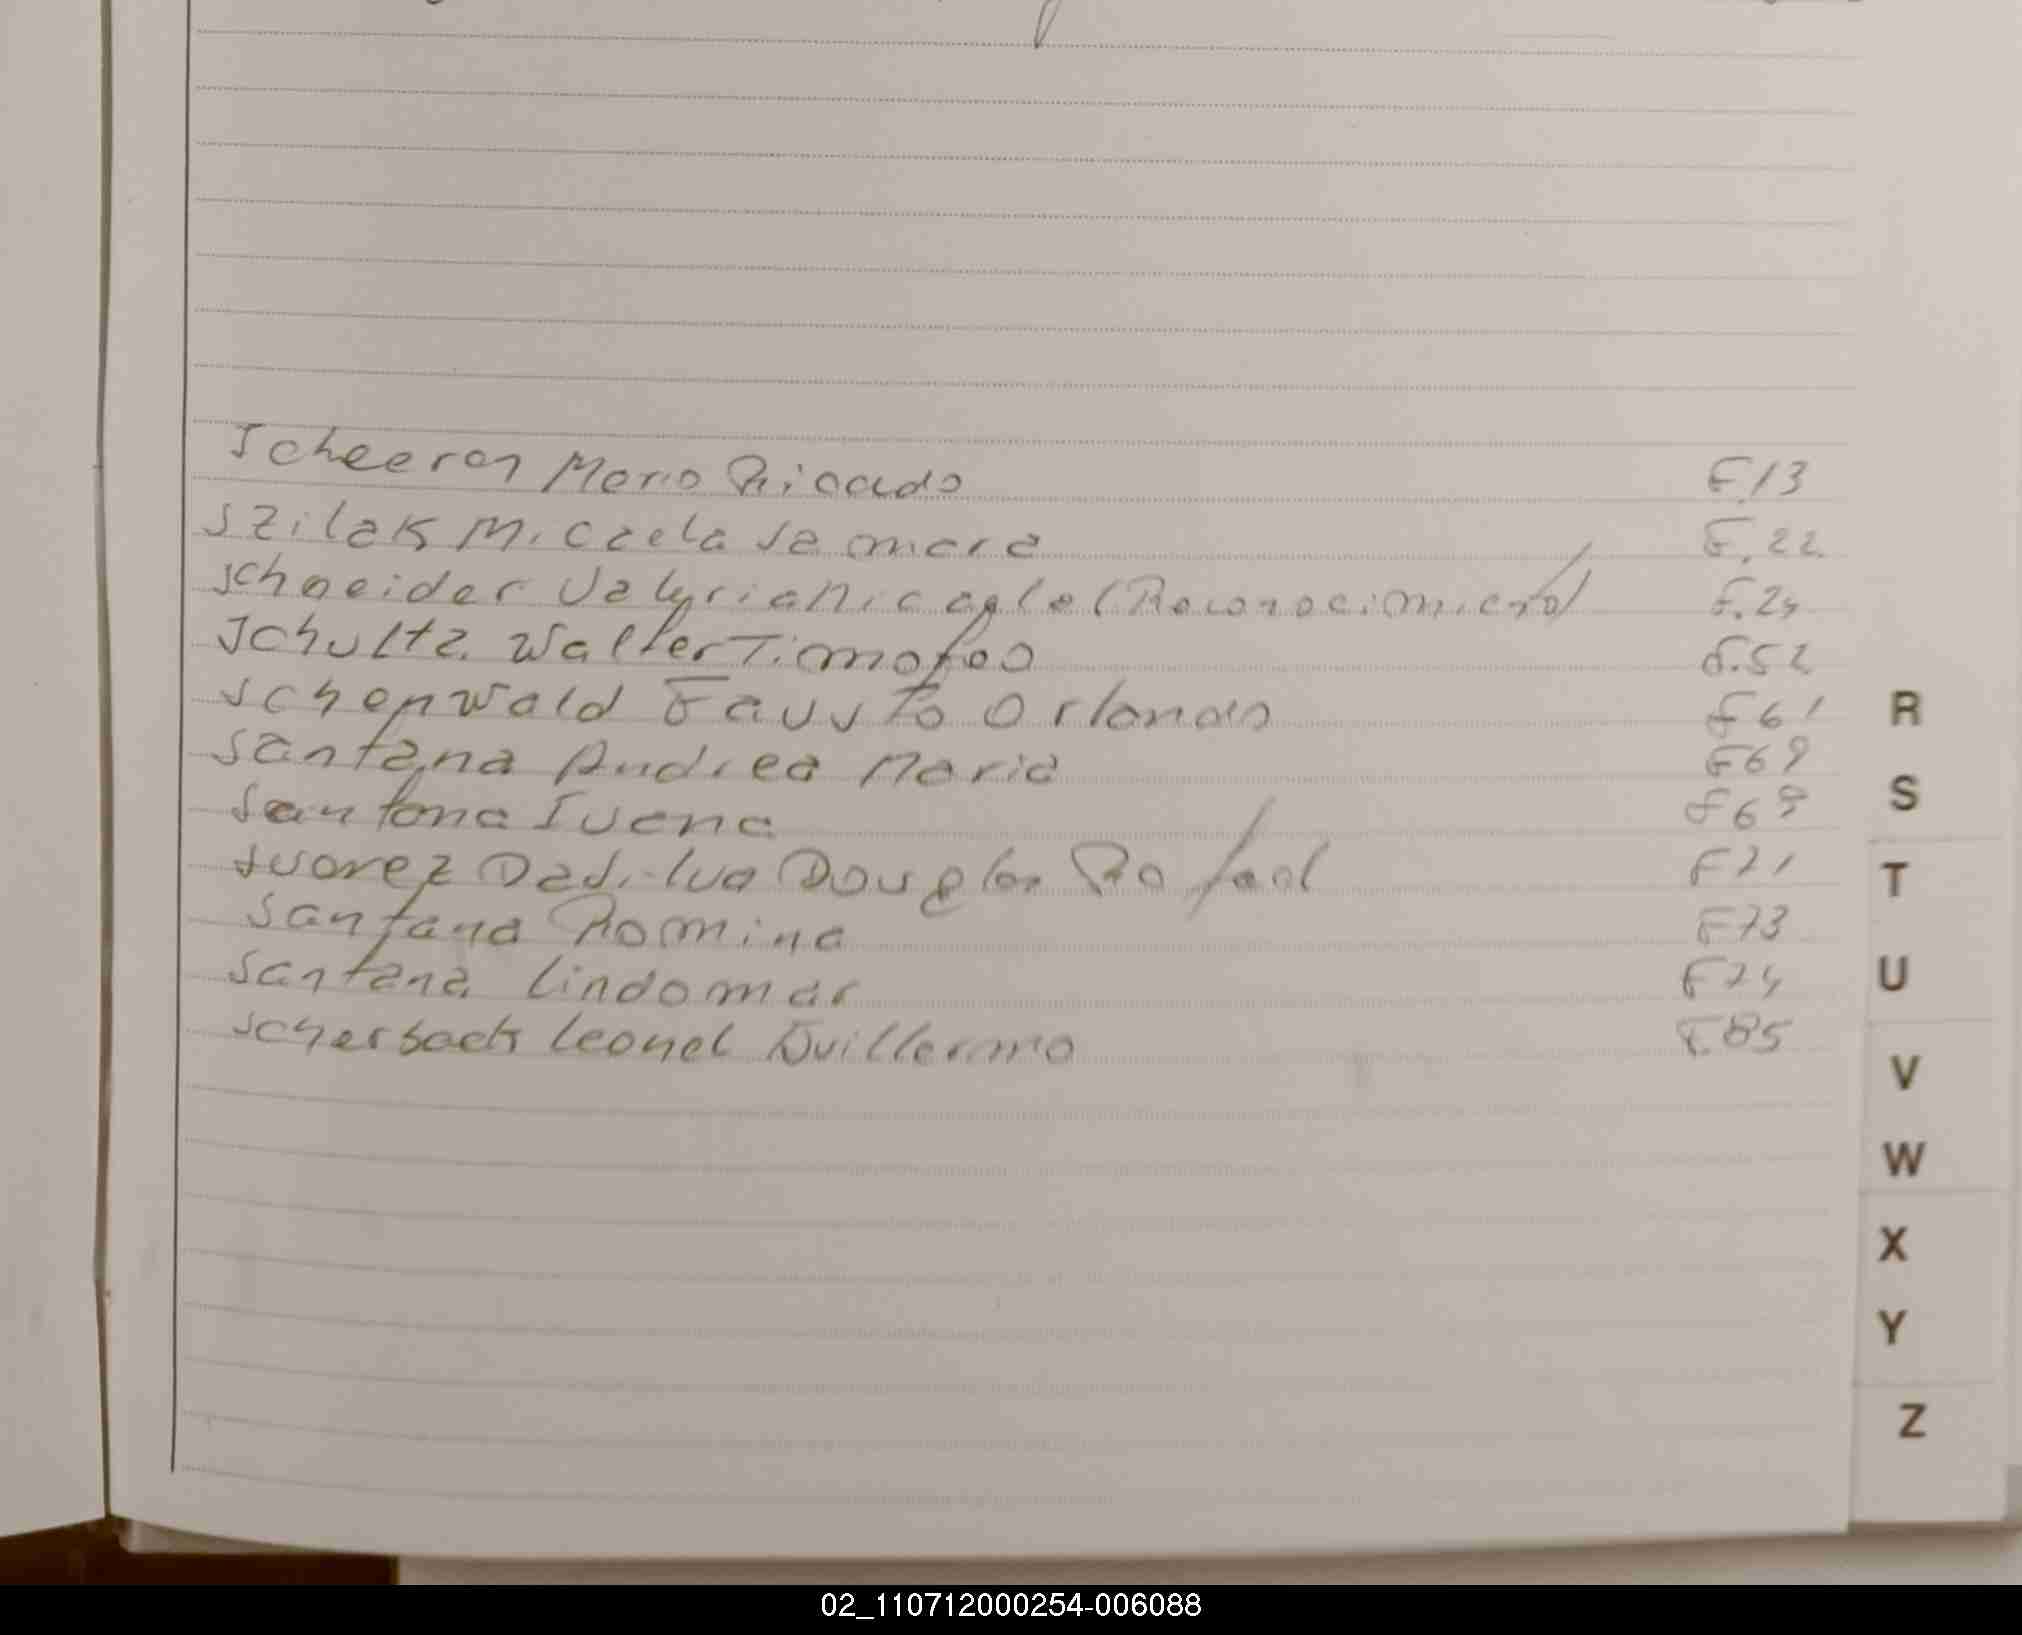 Scheeren Mario Ricardo F.13
Szilak Micaela Samara F.22
Schneider Valeria Nicaela (Reconocimiento) F.24
Schultz Walter Timoteo F.52
Schonwald Fausto Orlando F61
Santana Andrea Maria F69
Santana Ivana F69
Suarez Da Silva Douglas Rafael F71
Santana Romina F73
Santana Lindomar F74
Scherback Leonel Guillermo F.85
R
S
T
U
V
W
X
Y
Z
02_110712000254-006088